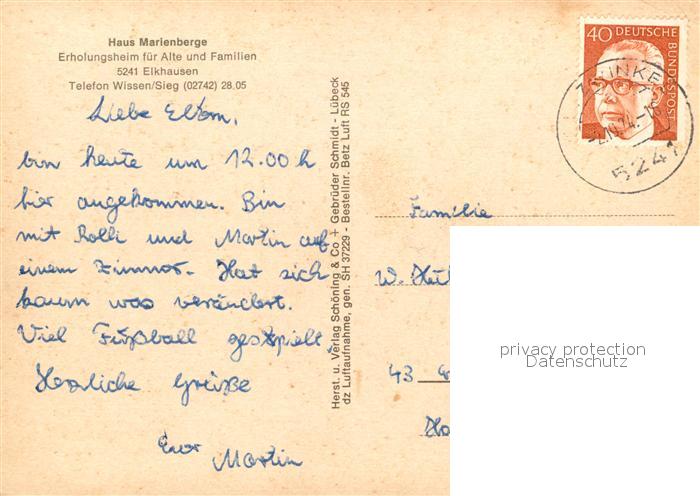 Haus Marienberge
Erholungsheim für Alte und Familien
5241 Elkhausen
Telefon Wissen/Sieg (02742) 28.05
Liebe Eltern,
bin heute um 12.00 h
hier angekommen. Bin
mit Rolli und Martin auf
einem Zimmer. Hat sich
kaum was verändert.
Viel Fußball gespielt.
Herzliche Grüße
Euer
Martin
Herst. u. Verlag Schöning & Co + Gebrüder Schmidt - Lübeck
dz Luftaufnahme, gen. SH 37229 - Bestellnr. Betz Luft RS 545
40 DEUTSCHE
BUNDESPOST
5241
Familie
W.
43
privacy protection
Datenschutz